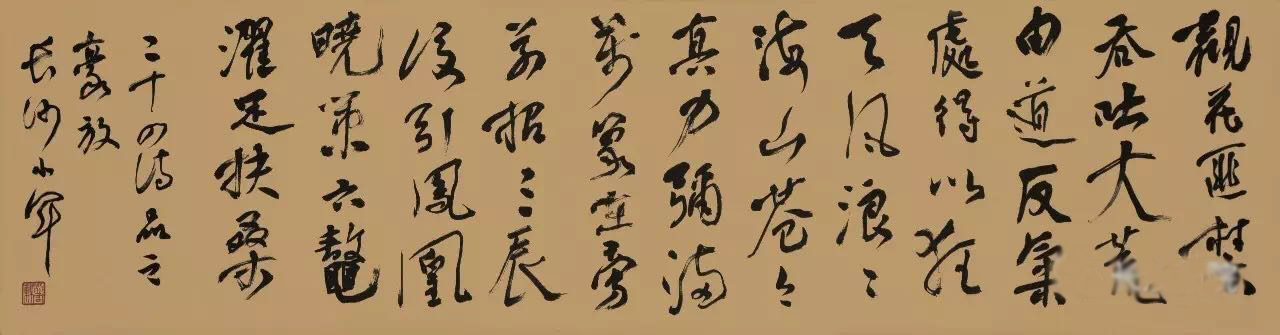 觀花匪禁
吞吐大荒
由道反氣
處得以狂
天风浪〻
海山苍〻
真力彌满
萬象在旁
前招三辰
後引鳳凰
曉策六鼇
濯足扶桑
二十四诗品之
豪放
长沙小军